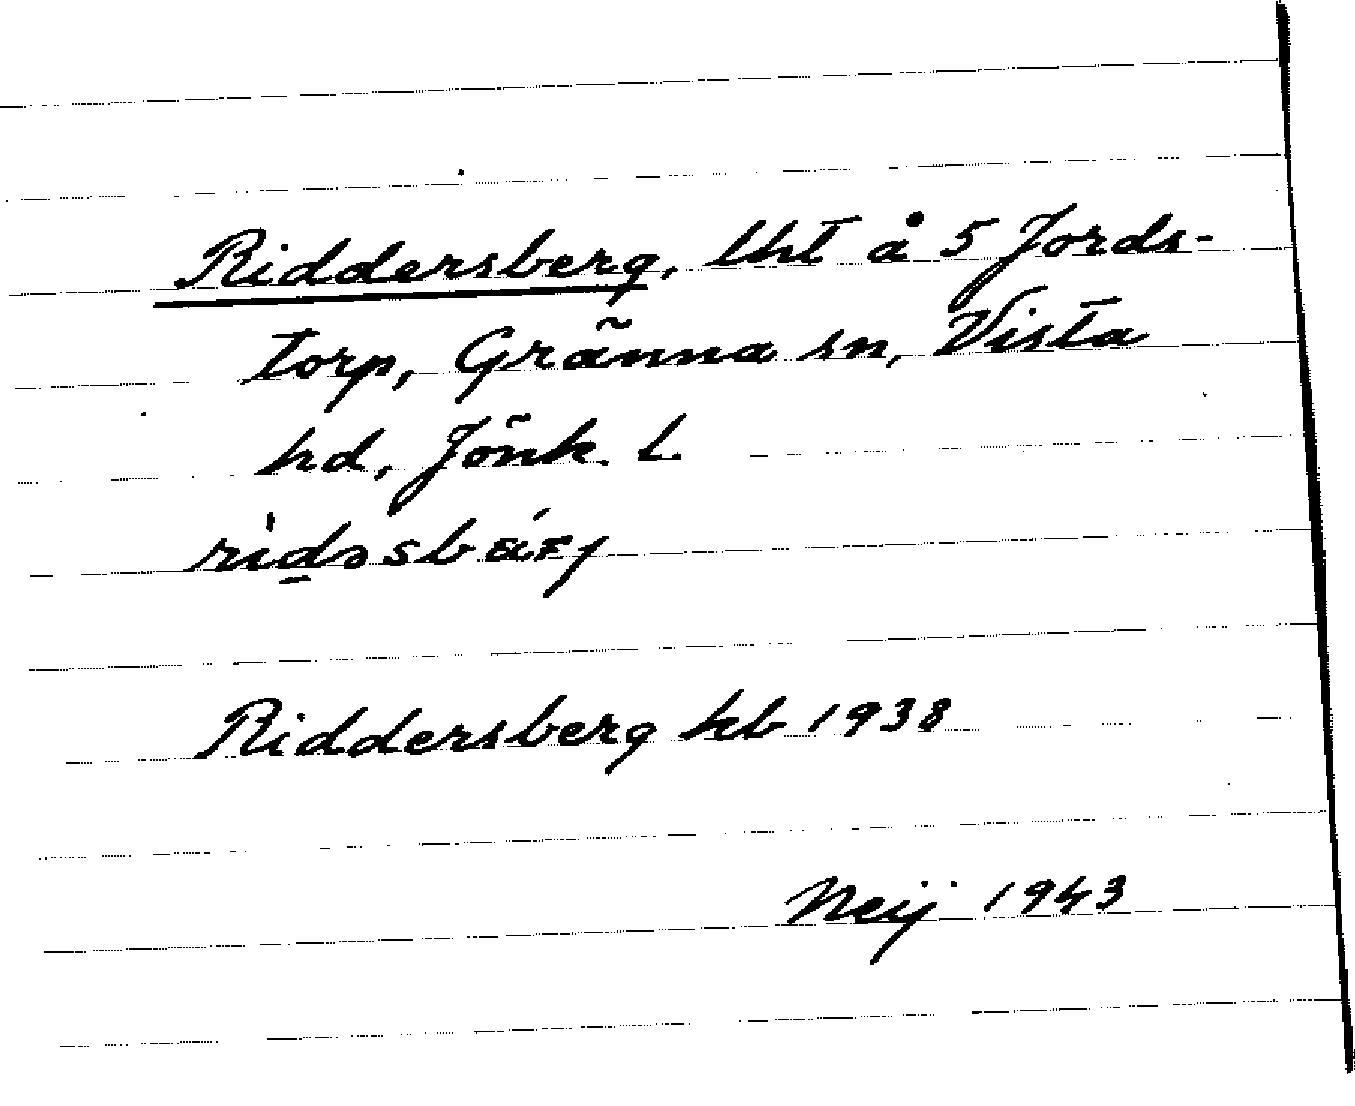 Riddersberg, lht å 5 Jords-
torp, Gränna sn, Vista
hd, Jönk. L.
Riddersberg kb 1938
Neij 1943